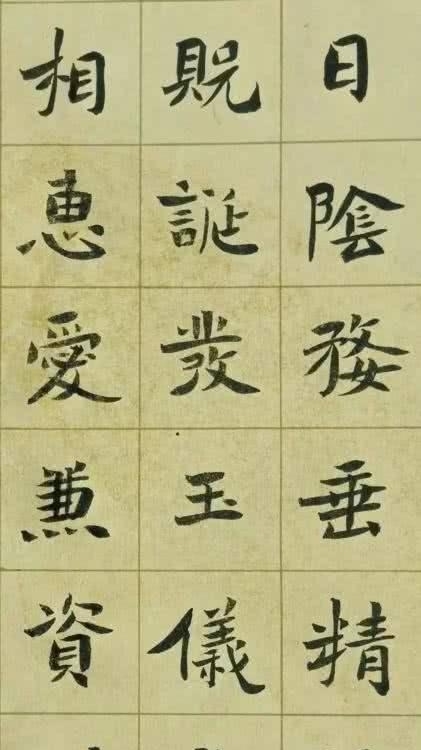 日陰婺垂精
貺誕發玉儀
相惠愛兼資